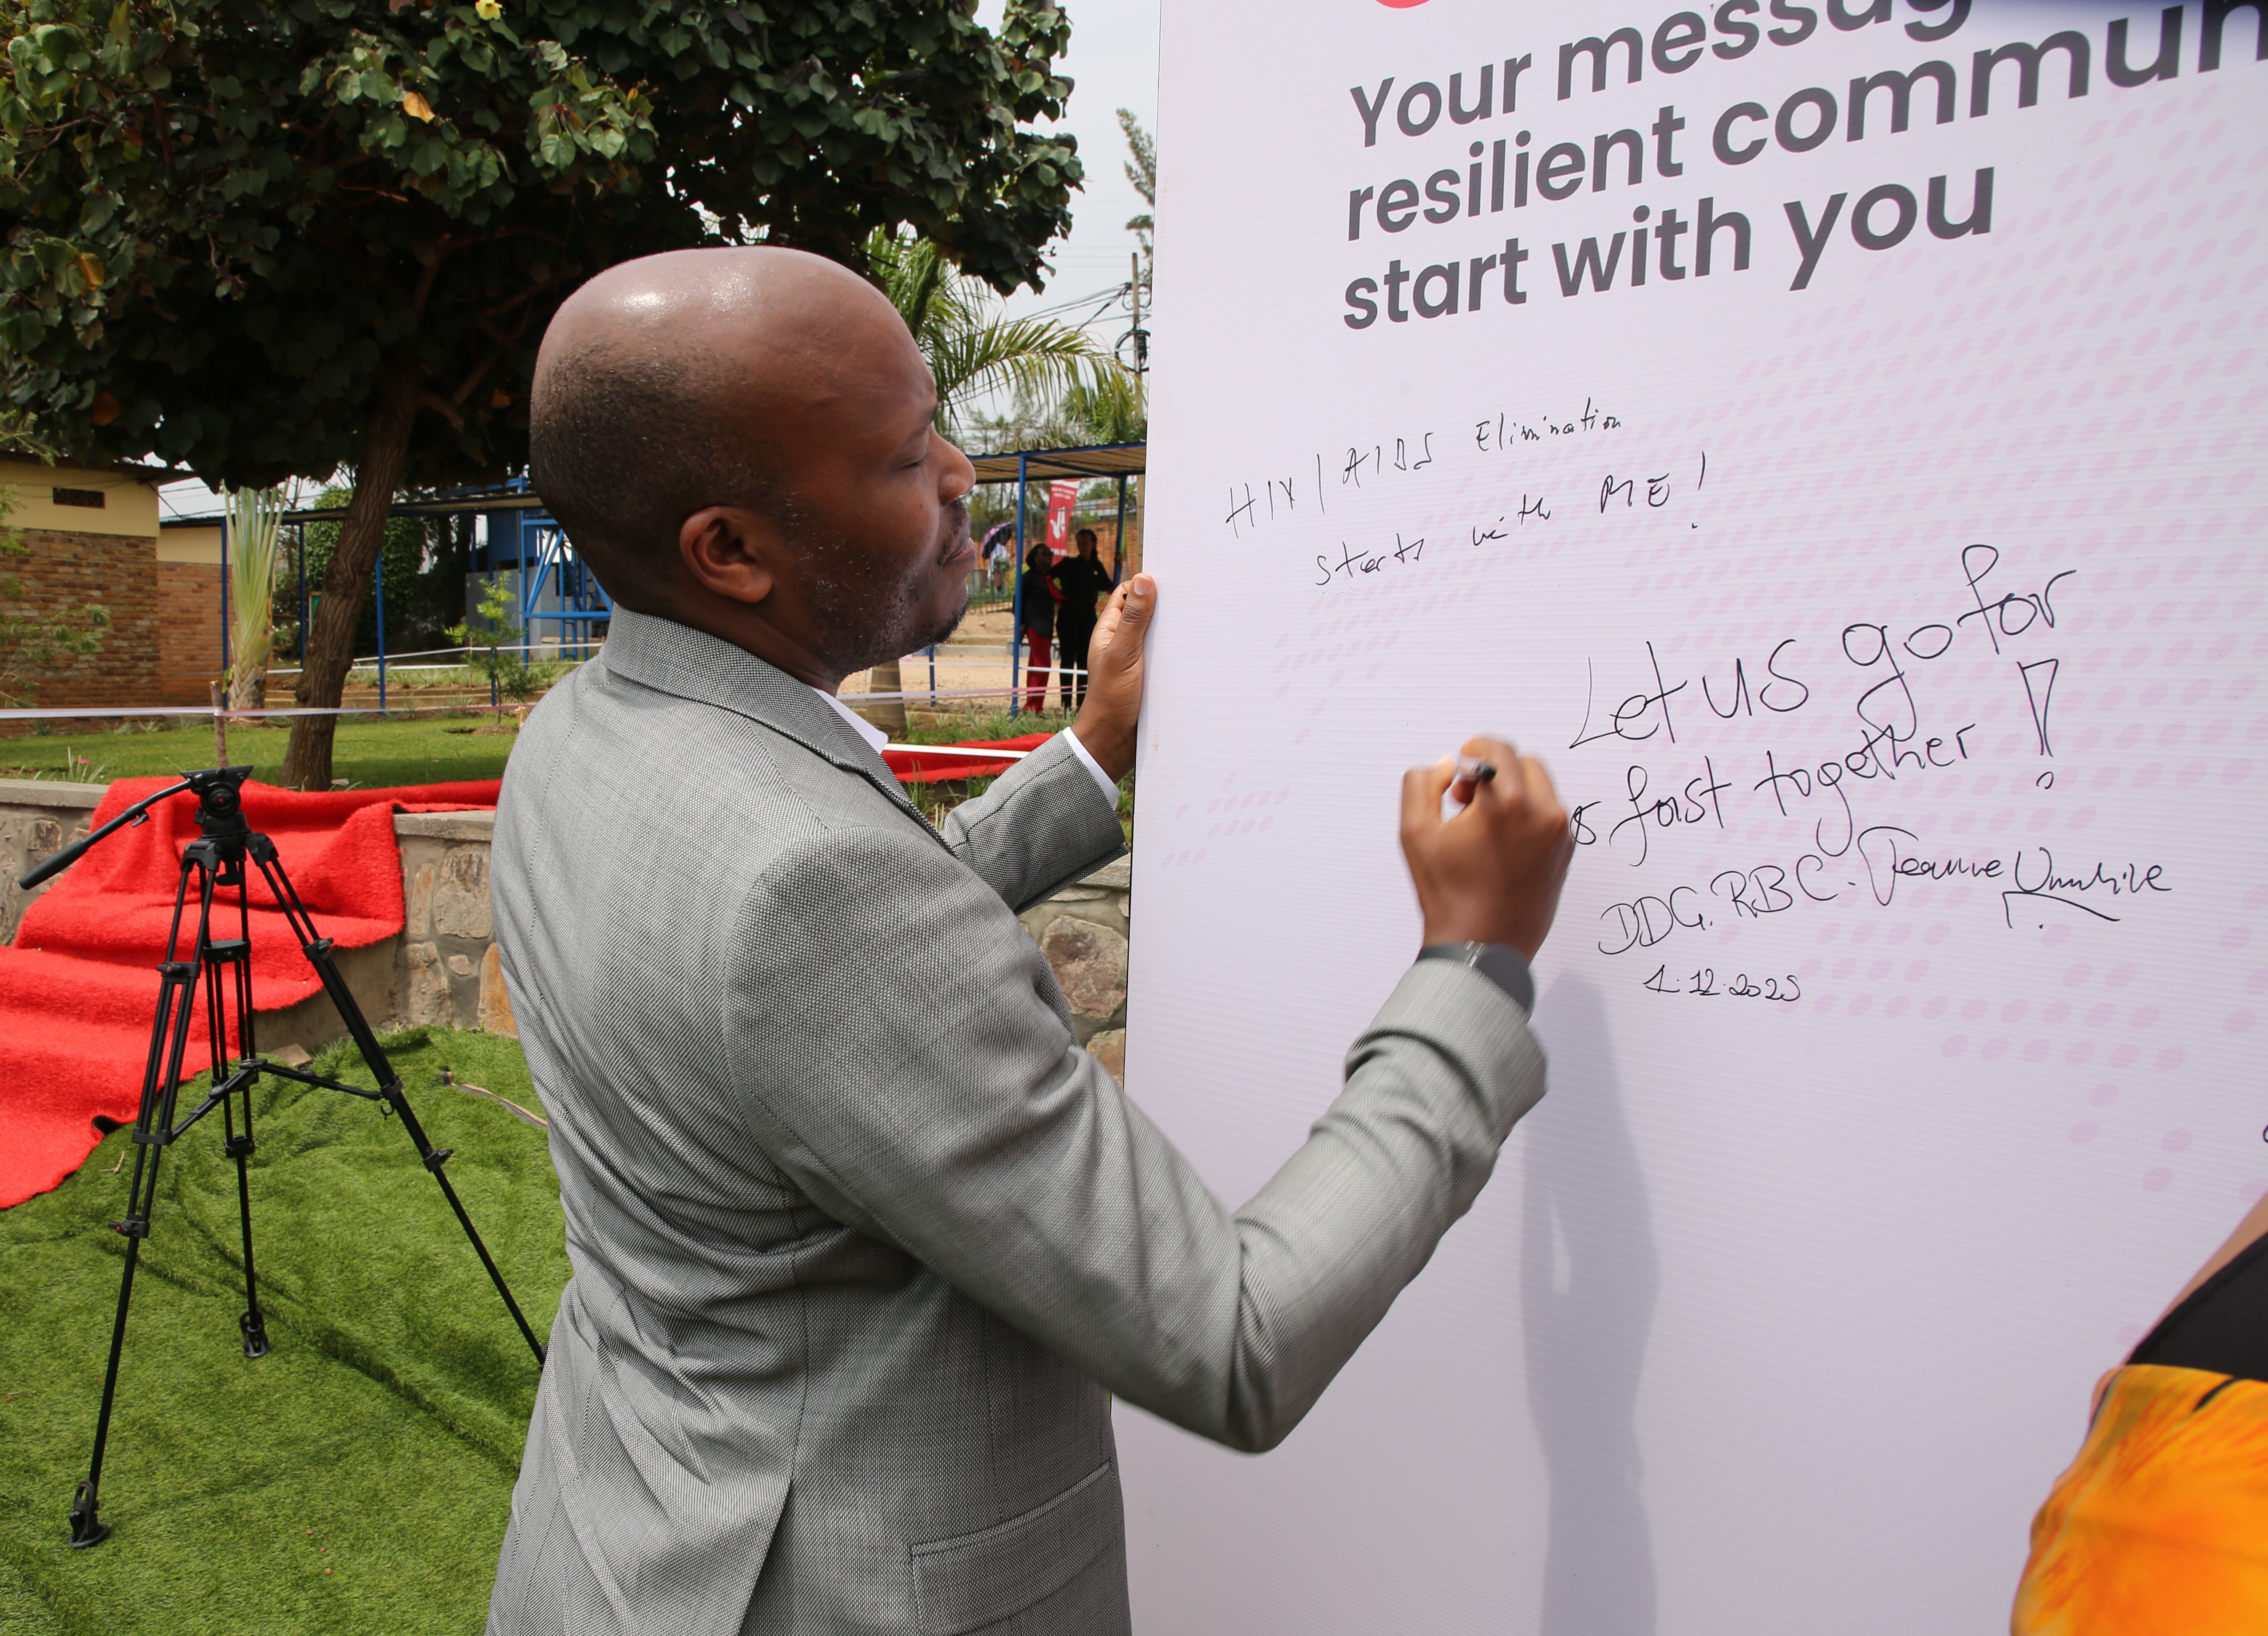 Your messag
resilient commun
start with you
HIV/AIDS Elimination
starts with ME!
Let us go for
fast together!
DDG. RBC. Jeanne Umuhire
1.12.2025